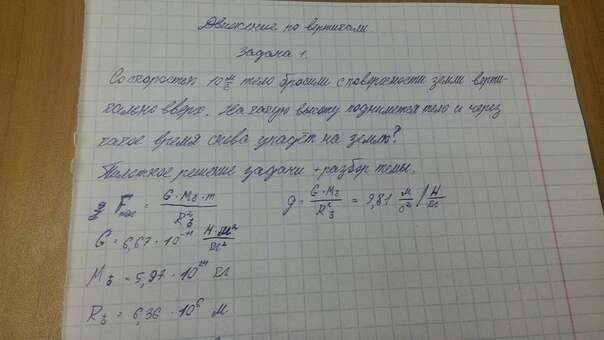 Движение по вертикали
Задача 1.
Со скоростью 10 м/с тело бросили с поверхности земли верти-
кально вверх. На какую высоту поднимется тело и через
какое время снова упадёт на землю?
решение задачи + разбор темы.
F = G · M₃ · m / R₃² g = G · M₃ / R₃² = 9,81 м/с² / Н/кг
G = 6,67 · 10⁻¹¹ Н·м²/кг²
M₃ = 5,97 · 10²⁴ кг
R₃ = 6,36 · 10⁶ м